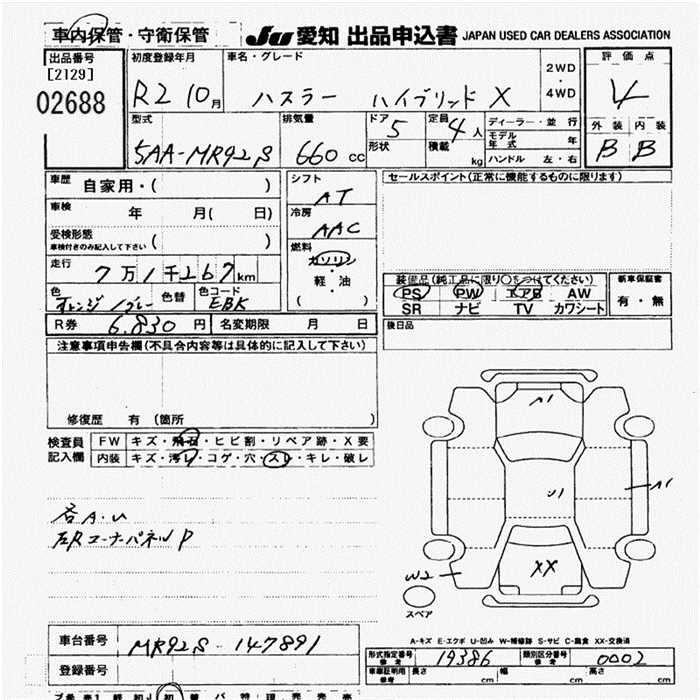 車内保管・守衛保管
JU 愛知 出品申込書 JAPAN USED CAR DEALERS ASSOCIATION
出品番号
[2129]
02688
初度登録年月
R2 10月
車名・グレード
ハスラー ハイブリッド X
2WD
・
4WD
評価点
4
外装 内装
B B
型式
5AA-MR92S
排気量
660 cc
ドア 5
形状
定員 4人
積載 kg
ディーラー・並行
モデル年式 年
ハンドル 左・右
車歴 自家用・( )
車検 年 月( 日)
受検形態
車検付きのみ記入して下さい ( )
走行
7万1千267km
色
オレンジ/グレー
色替
色コード
EBK
シフト
AT
冷房
AAC
燃料
ガソリン
軽・油
( )
R券 6,830円 名変期限 月 日
セールスポイント(正常に機能するものに限ります)
装備品(純正品に限り○をつけてください)
PS PW エアB AW
SR ナビ TV カワシート
新車保証書
有・無
後日品
注意事項申告欄(不具合内容等は具体的に記入して下さい)
修復歴 有 (箇所 )
検査員
記入欄
FW キズ・飛石・ヒビ割・リペア跡・X要
内装 キズ・汚レ・コゲ・穴・スレ・キレ・破レ
各A・U
左Rコーナーパネル P
A1
U1
A1
XX
W2
スペア
A-キズ E-エクボ U-凹み W-補修跡 S-サビ C-腐食 XX-交換済
車台番号 MR92S-147891
登録番号
形式指定番号
参考
19386
類別区分番号
参考
0002
車庫証明用
参考
長さ cm 幅 cm 高さ cm